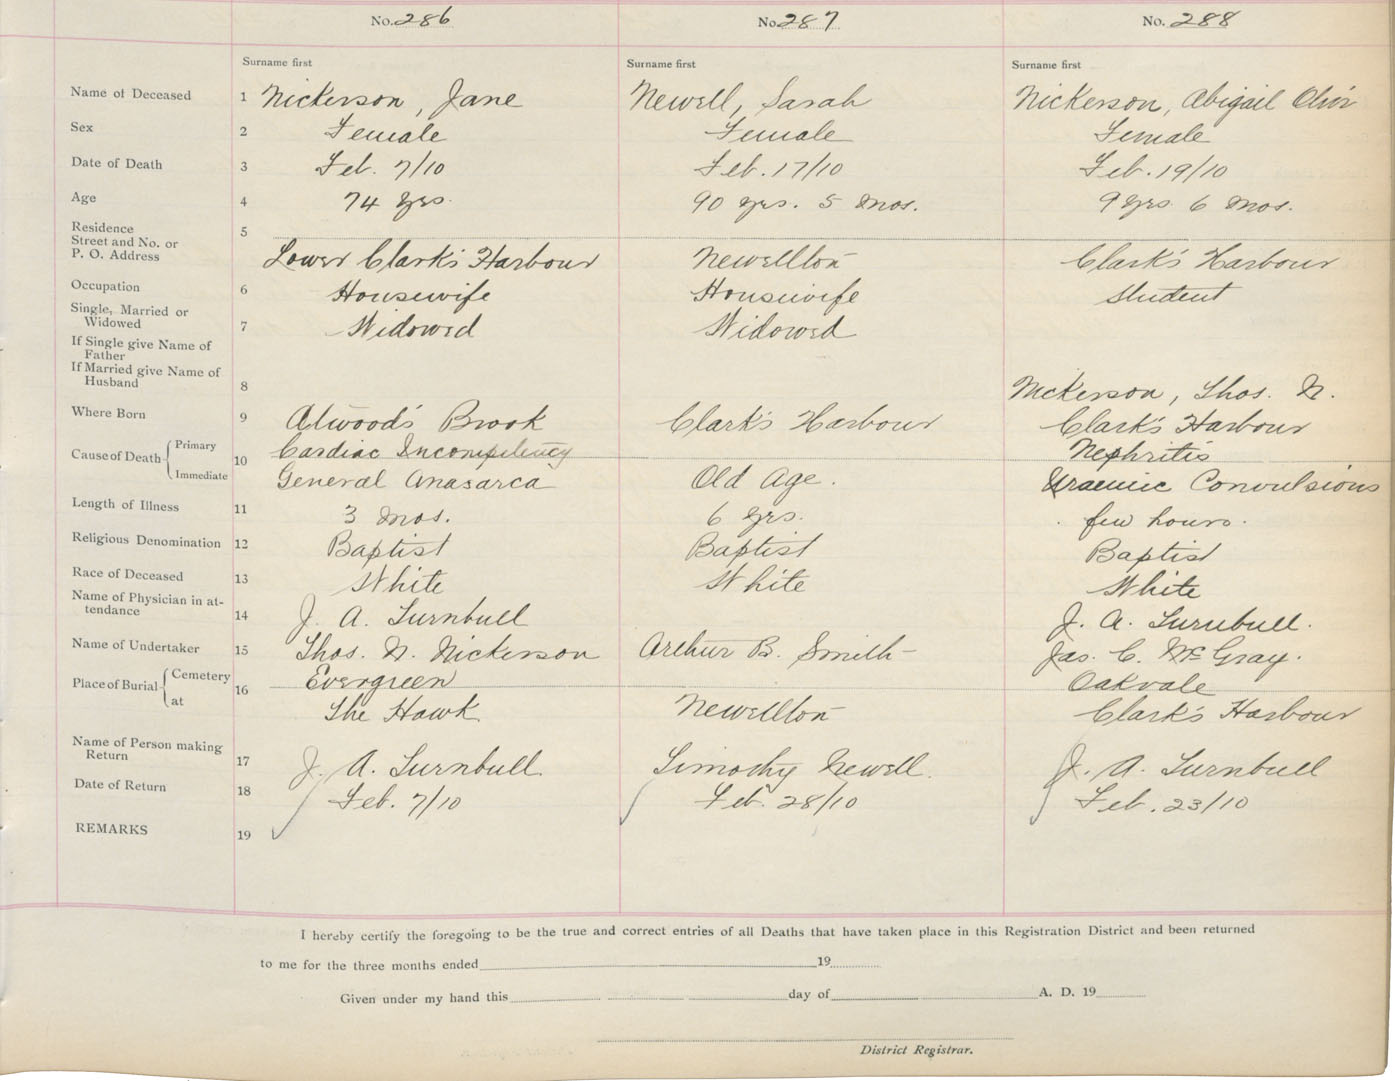 No. 286 No. 287 No. 288
Surname first Surname first Surname first
Name of Deceased 1 Nickerson, Jane Newell, Sarah Nickerson, Abigail
Sex 2 Female Female Female
Date of Death 3 Feb. 7/10 Feb. 17/10 Feb. 19/10
Age 4 74 yrs. 90 yrs. 5 mos. 9 yrs 6 mos.
Residence
Street and No. or
P. O. Address 5 Lower Clark's Harbour Newellton Clark's Harbour
Occupation 6 Housewife Housewife Student
Single, Married or
Widowed 7 Widowed Widowed
If Single give Name of
Father
If Married give Name of
Husband 8 Nickerson, Thos. N.
Where Born 9 Atwood's Brook Clark's Harbour Clark's Harbour
Cause of Death Primary 10 Cardiac Incompetency Nephritis
Immediate General Anasarca Old Age. Uraemic Convulsions
Length of Illness 11 3 mos. 6 yrs. few hours.
Religious Denomination 12 Baptist Baptist Baptist
Race of Deceased 13 White White White
Name of Physician in at-
tendance 14 J. A. Turnbull J. A. Turnbull.
Name of Undertaker 15 Thos. N. Nickerson Arthur B. Smith Jas. C. McGray.
Place of Burial Cemetery 16 Evergreen Oakvale
at The Hawk Newellton Clark's Harbour
Name of Person making
Return 17 J. A. Turnbull Timothy Newell. J. A. Turnbull
Date of Return 18 Feb. 7/10 Feb. 28/10 Feb. 23/10
REMARKS 19
I hereby certify the foregoing to be the true and correct entries of all Deaths that have taken place in this Registration District and been returned
to me for the three months ended 19
Given under my hand this day of A. D. 19
District Registrar.